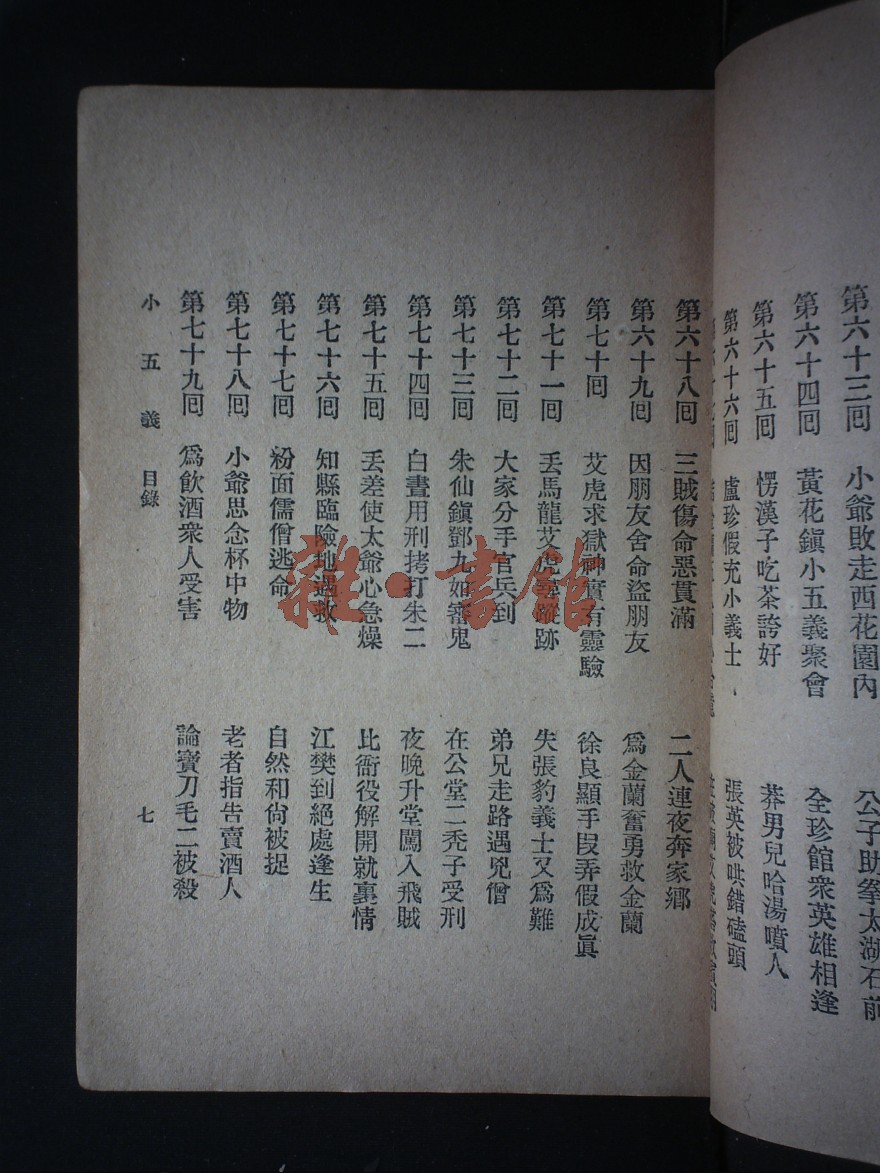 第六十三囘 小爺敗走西花園內 公子助拳太湖石前
第六十四囘 黃花鎭小五義聚會 全珍館衆英雄相逢
第六十五囘 愣漢子吃茶誇好 莽男兒哈湯噴人
第六十六囘 盧珍假充小義士 張英被哄錯磕頭
第六十八囘 三賊傷命惡貫滿 二人連夜奔家鄉
第六十九囘 因朋友舍命盜朋友 爲金蘭奮勇救金蘭
第七十囘 艾虎求獄神實有靈驗 徐良顯手段弄假成眞
第七十一囘 丟馬龍艾虎尋蹤跡 失張豹義士又爲難
第七十二囘 大家分手官兵到 弟兄走路遇兇僧
第七十三囘 朱仙鎭鄧九如審鬼 在公堂二禿子受刑
第七十四囘 白晝用刑拷打朱二 夜晚升堂闖入飛賊
第七十五囘 丟差使太爺心急燥 比衙役解開就裏情
第七十六囘 知縣臨險地遇救 江樊到絕處逢生
第七十七囘 粉面儒僧逃命 自然和尙被捉
第七十八囘 小爺思念杯中物 老者指告賣酒人
第七十九囘 爲飮酒衆人受害 論寶刀毛二被殺
小五義 目錄 七
雜·書館